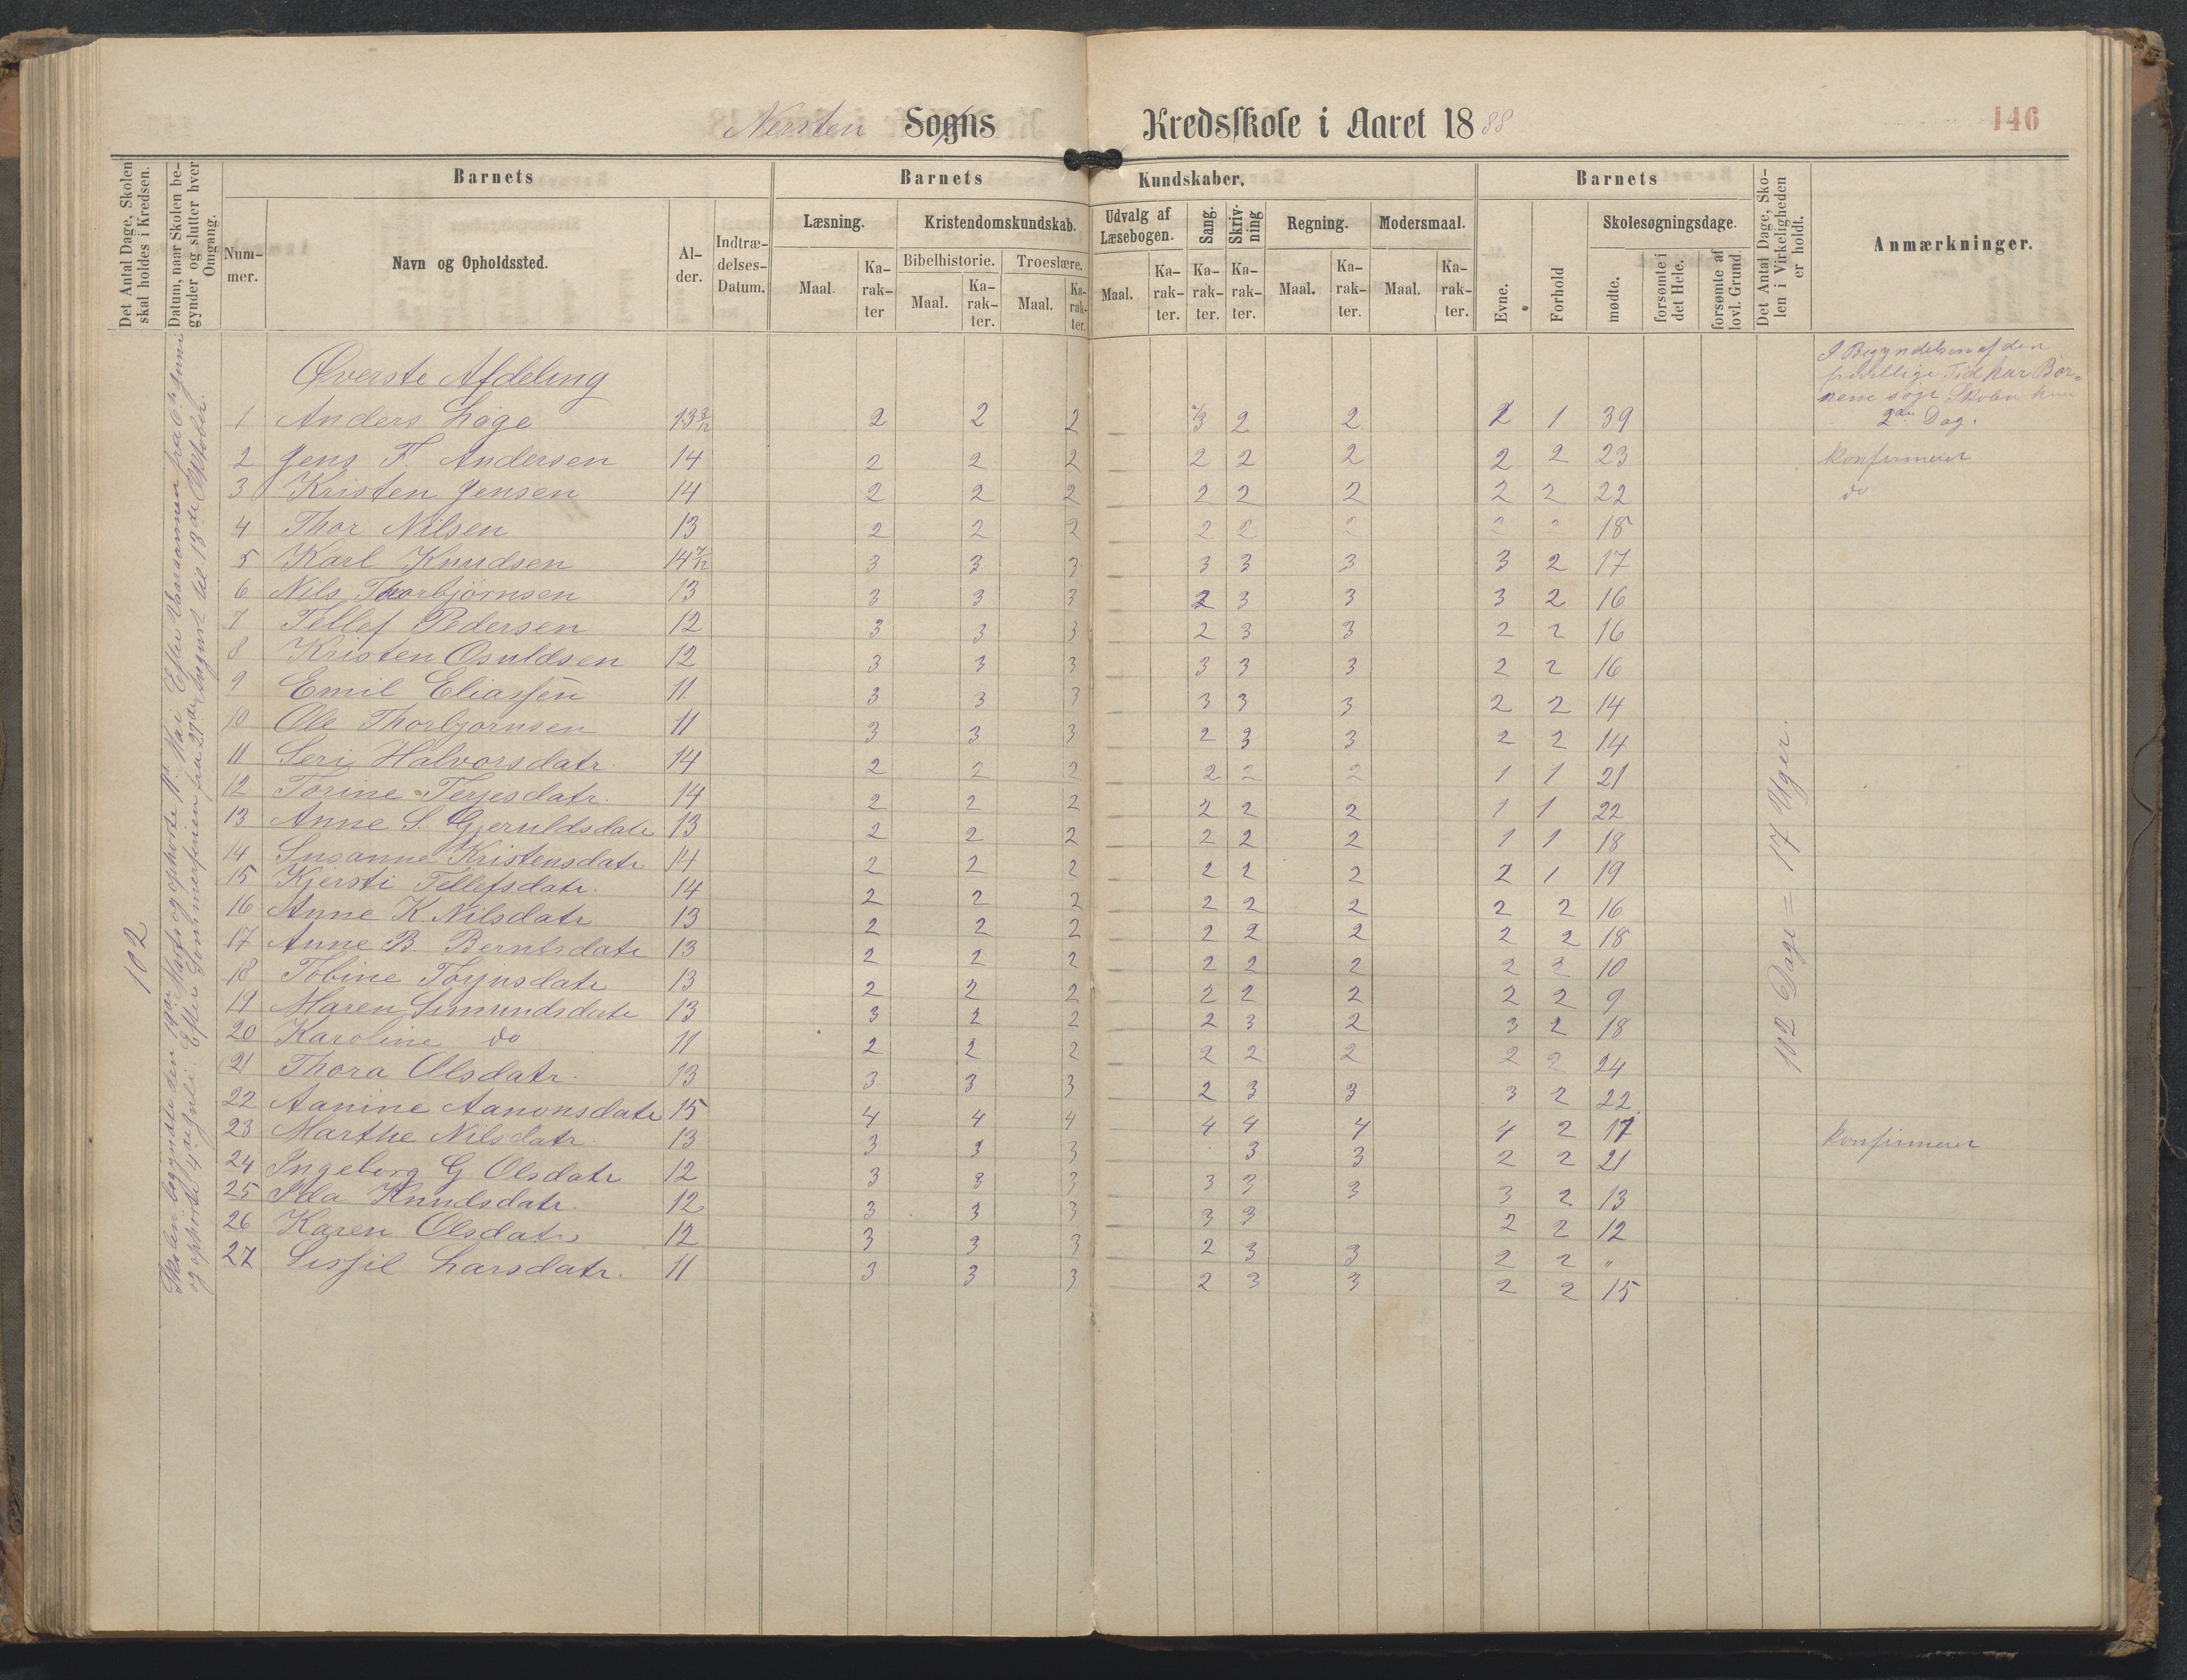 Nersten Sogns Kredsskole i Aaret 1888 146
Det Antal Dage, Skolen skal holdes i Kredsen.
Datum, naar Skolen begynder og slutter hver Omgang.
Barnets
Barnets Kundskaber.
Barnets
Det Antal Dage, Skolen i Virkeligheden er holdt.
Anmærkninger.
Nummer.
Navn og Opholdssted.
Alder.
Indtrædelses-Datum.
Læsning.
Kristendomskundskab.
Udvalg af Læsebogen.
Sang.
Skrivning
Regning.
Modersmaal.
Evne.
Forhold
Skolesøgningsdage.
Bibelhistorie.
Troeslære.
Maal.
Karakter
Maal.
Karakter.
Maal.
Karakter.
Maal.
Karakter.
Karakter.
Karakter.
Maal.
Karakter.
Maal.
Karakter.
mødte.
forsømte i det Hele.
forsømte af lovl. Grund
102
Skolen begyndte den 19de Marts og ophørte 11te Mai. Efter Vaaraannen fra 6te Juni
og ophørte 4de Juli. Efter Sommerferien fra 21de August til 18de Oktober.
102 Dage = 17 Uger.
I Begyndelsen af den
frivillige Tid har Bør-
nene søgt Skolen hver
2den Dag.
Øverste Afdeling
1 Anders Løge 13 3/12 2 2 2 — 2/3 2 2 2 1 39
2 Jens F. Andersen 14 2 2 2 — 2 2 2 2 2 23 konfirmeret
3 Kristen Jensen 14 2 2 2 — 2 2 2 2 2 22 do
4 Thor Nilsen 13 2 2 2 — 2 2 2 2 2 18
5 Karl Knudsen 14 7/12 3 3 3 — 3 3 3 3 2 17
6 Nils Thorbjørnsen 13 3 3 3 — 2 3 3 3 2 16
7 Tellef Pedersen 12 3 3 3 — 2 3 3 2 2 16
8 Kristen Osuldsen 12 3 3 3 — 3 3 3 2 2 16
9 Emil Eliassen 11. 3 3 3 — 3 3 3 2 2 14
10 Ole Thorbjørnsen 11 3 3 3 — 2 3 3 2 2 14
11 Seri Halvorsdatr. 14 2 2 2 — 2 2 2 1 1 21
12 Torine Terjesdatr. 14 2 2 2 — 2 2 2 1 1 22
13 Anne S. Gjeruldsdatr 13 2 2 2 — 2 2 2 1 1 18
14 Susanne Kristensdatr 14 2 2 2 — 2 2 2 2 1 19
15 Kjersti Tellefsdatr. 14 2 2 2 — 2 2 2 2 2 16
16 Anne K. Nilsdatr 13 2 2 2 — 2 2 2 2 2 18
17 Anne B. Berntsdatr 13 2 2 2 — 2 2 2 2 2 10
18 Tobine Torjusdatr 13 2 2 2 — 2 2 2 2 2 9
19 Maren Simundsdatr 13 3 2 2 — 2 3 2 3 2 18
20 Karoline do 11 2 2 2 — 2 2 2 2 2 24
21 Thora Olsdatr. 13 3 3 3 — 2 3 3 3 2 22
22 Aanine Aanonsdatr 15 4 4 4 — 4 4 4 4 2 17 konfirmeret
23 Marthe Nilsdatr. 13 3 3 3 — 3 3 2 2 21
24 Ingeborg G Olsdatr 12 3 3 3 — 3 3 3 3 2 13
25 Ida Knudsdatr. 12 3 3 3 — 3 3 2 2 12
26 Karen Olsdatr 12 3 3 3 — 2 3 3 2 2 "
27 Sissil Larsdatr. 11 3 3 3 — 2 3 3 2 2 15